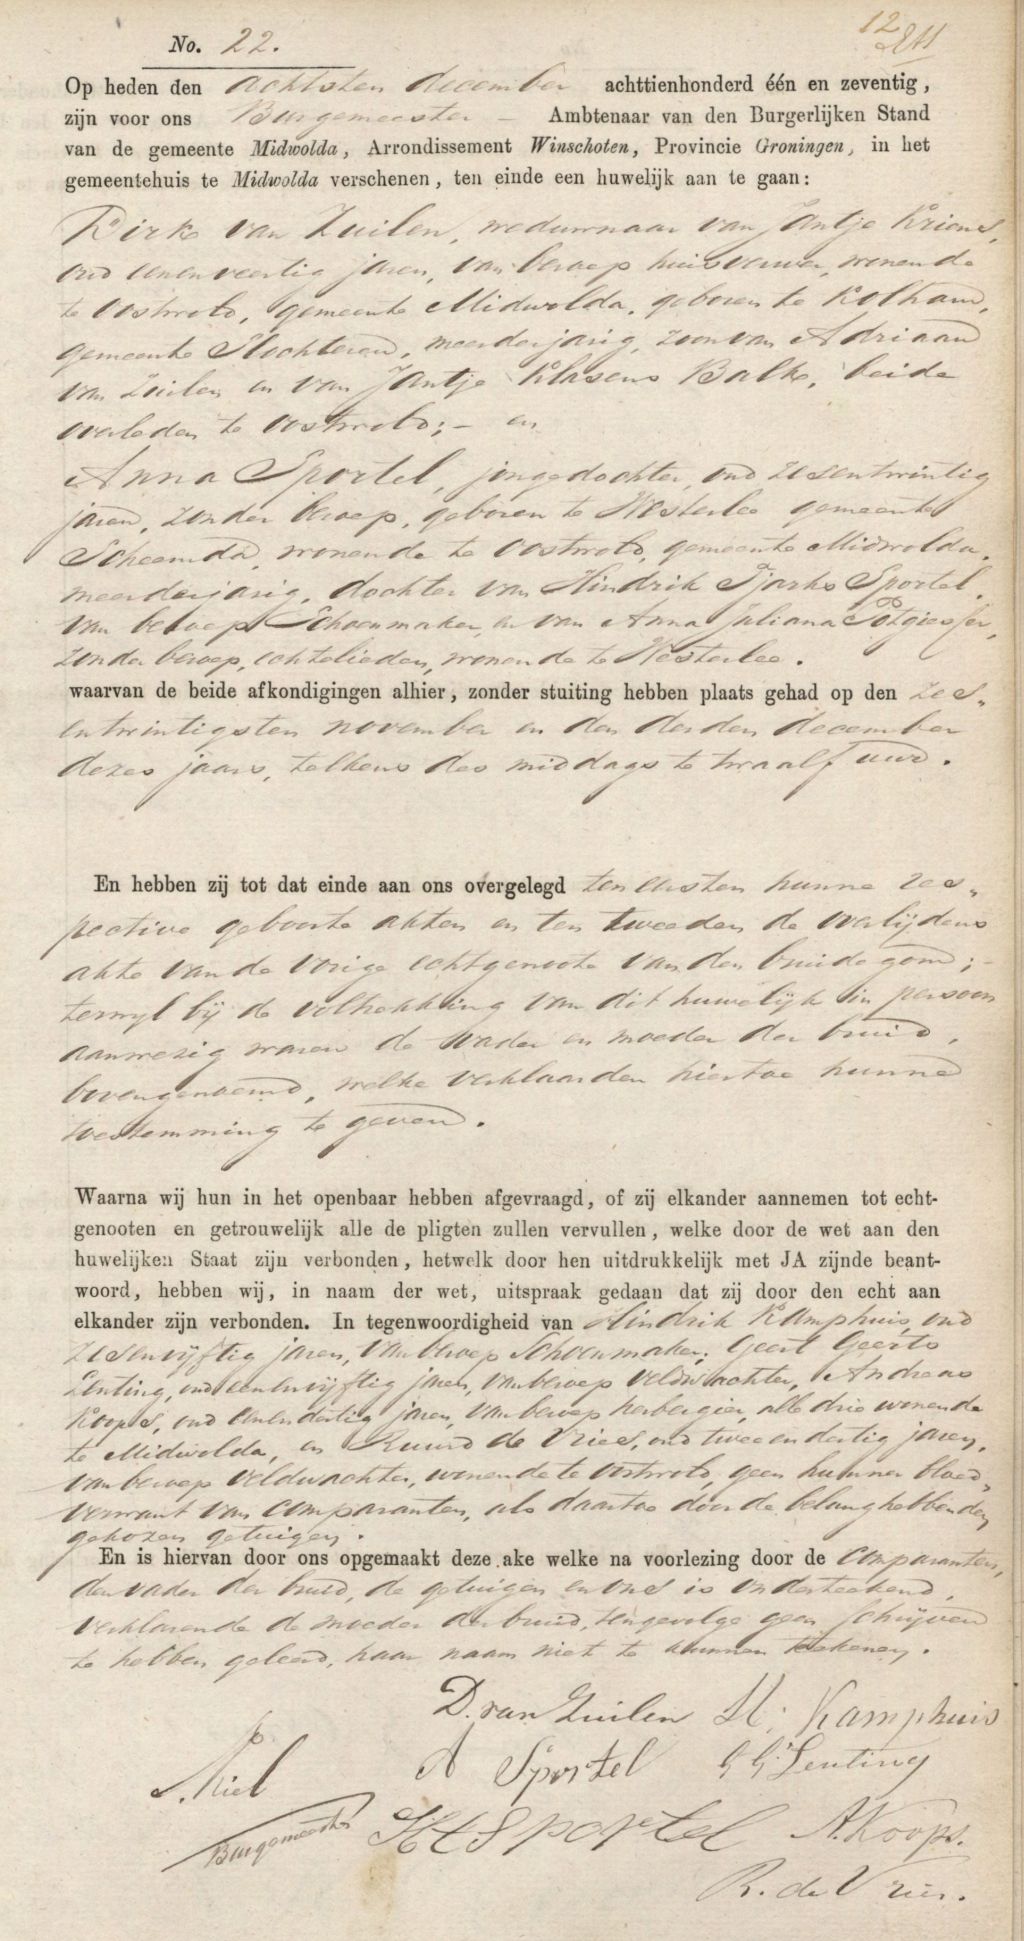 No. 22.
12
Op heden den achtsten december achttienhonderd één en zeventig,
zijn voor ons Burgemeester – Ambtenaar van den Burgerlijken Stand
van de gemeente Midwolda, Arrondissement Winschoten, Provincie Groningen, in het
gemeentehuis te Midwolda verschenen, ten einde een huwelijk aan te gaan:
Dirk van Zuilen, weduwnaar van Jantje Kriens,
oud eenenveertig jaren, van beroep huisverwer, wonende
te Oostwold, gemeente Midwolda, geboren te Kolham,
gemeente Slochteren, meerderjarig, zoon van Adriaan
van Zuilen en van Jantje Klasens Balk, beide
overleden te Oostwold; – en
Anna Sportel, jongedochter, oud zesentwintig
jaren, zonder beroep, geboren te Westerlee gemeente
Scheemda, wonende te Oostwold, gemeente Midwolda,
meerderjarig, dochter van Hindrik Tjarks Sportel,
van beroep Schoenmaker, en van Anna Juliana Potgiesser,
zonder beroep, echtelieden, wonende te Westerlee.
waarvan de beide afkondigingen alhier, zonder stuiting hebben plaats gehad op den zes„
entwintigsten november en den derden december
dezes jaars, telkens des middags te twaalf uur.
En hebben zij tot dat einde aan ons overgelegd ten eersten hunne res„
pective geboorte akten en ten tweeden de overlijdens
akte van de vorige echtgenoote van den bruidegom; –
terwyl bij de voltrekking van dit huwelijk in persoon
aanwezig waren de Vader en moeder der bruid,
bovengenoemd, welke verklaarden hiertoe hunne
toestemming te geven.
Waarna wij hun in het openbaar hebben afgevraagd, of zij elkander aannemen tot echt-
genooten en getrouwelijk alle de pligten zullen vervullen, welke door de wet aan den
huwelijken Staat zijn verbonden, hetwelk door hen uitdrukkelijk met JA zijnde beant-
woord, hebben wij, in naam der wet, uitspraak gedaan dat zij door den echt aan
elkander zijn verbonden. In tegenwoordigheid van Hindrik Kamphuis, oud
zesenvijftig jaren, van beroep Schoenmaker, Geert Geerts
Lenting, oud eenenvijftig jaren, van beroep veldwachter, Andreas
Koops, oud eenendertig jaren, van beroep herbergier, alle drie wonende
te Midwolda, en Ruurd de Vries, oud tweeendertig jaren,
van beroep Veldwachter, wonende te Oostwold, geen hunner bloed„
verwant van comparanten, als daartoe door de belanghebbenden
gekozen getuigen.
En is hiervan door ons opgemaakt deze ake welke na voorlezing door de comparanten,
den vader der bruid, de getuigen en ons is onderteekend,
verklarende de moeder der bruid, tengevolge geen Schrijven
te hebben geleerd, haar naam niet te kunnen teekenen.
D. van Zuilen H. Kamphuis
A Sportel G G Lenting
Kiel
Burgemeester
H T Sportel A. Koops.
R. de Vries.